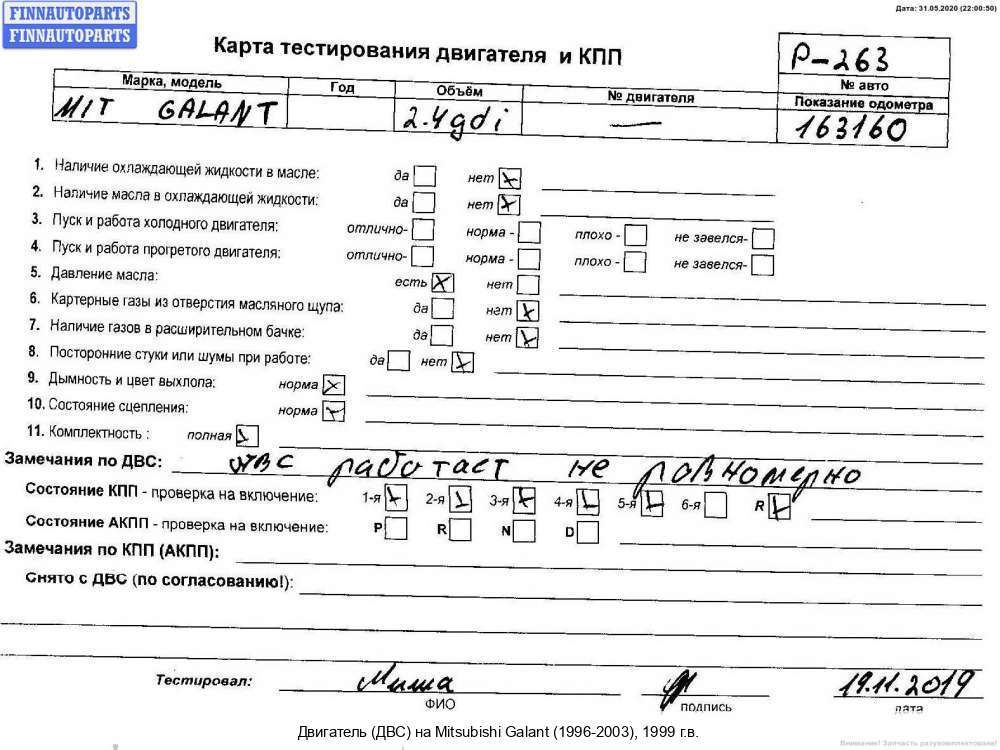 FINNAUTOPARTS
FINNAUTOPARTS
Дата: 31.05.2020 (22:00:50)
Карта тестирования двигателя и КПП
P-263
№ авто
Марка, модель Год Объём № двигателя Показание одометра
MIT GALANT 2.4gdi — 163160
1. Наличие охлаждающей жидкости в масле: да нет
2. Наличие масла в охлаждающей жидкости: да нет
3. Пуск и работа холодного двигателя: отлично- норма - плохо - не завелся-
4. Пуск и работа прогретого двигателя: отлично- норма - плохо - не завелся-
5. Давление масла: есть нет
6. Картерные газы из отверстия масляного щупа: да нет
7. Наличие газов в расширительном бачке: да нет
8. Посторонние стуки или шумы при работе: да нет
9. Дымность и цвет выхлопа: норма
10. Состояние сцепления: норма
11. Комплектность : полная
Замечания по ДВС: ДВС работает не равномерно
Состояние КПП - проверка на включение: 1-я 2-я 3-я 4-я 5-я 6-я R
Состояние АКПП - проверка на включение: P R N D
Замечания по КПП (АКПП):
Снято с ДВС (по согласованию!):
Тестировал: Миша 19.11.2019
ФИО подпись дата
Двигатель (ДВС) на Mitsubishi Galant (1996-2003), 1999 г.в.
Внимание! Запчасть разукомплектована!